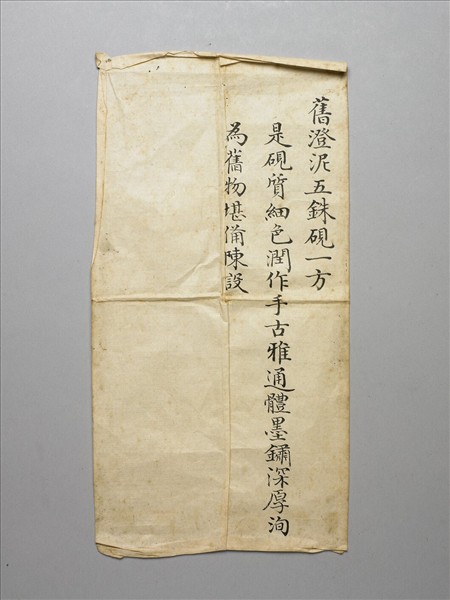 舊澄泥五銖硯一方
是硯質細色潤作手古雅通體墨鏽深厚洵
為舊物堪備陳設